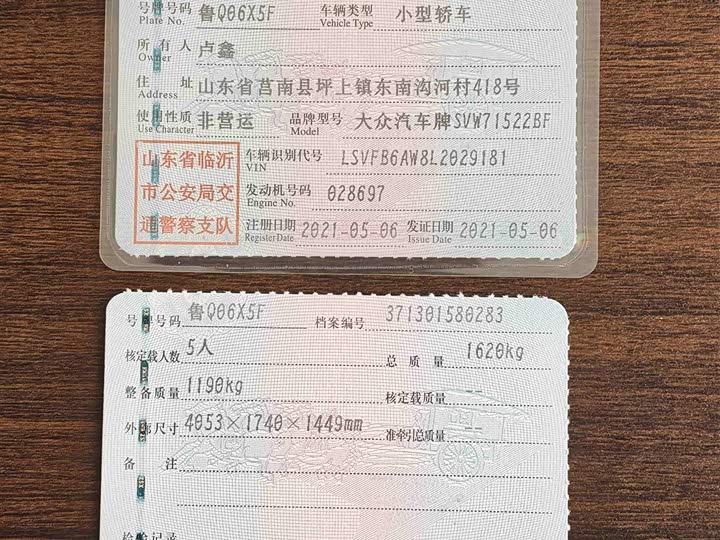 号牌号码 鲁Q06X5F 车辆类型 小型轿车
Plate No. Vehicle Type
所有人 卢鑫
Owner
住址 山东省莒南县坪上镇东南沟河村418号
Address
使用性质 非营运 品牌型号 大众汽车牌SVW71522BF
Use Character Model
山东省临沂
市公安局交
通警察支队
车辆识别代号 LSVFB6AW8L2029181
VIN
发动机号码 028697
Engine No.
注册日期 2021-05-06 发证日期 2021-05-06
Register Date Issue Date
号牌号码 鲁Q06X5F 档案编号 371301580283
核定载人数 5人 总质量 1620kg
整备质量 1190kg 核定载质量 --
外廓尺寸 4053×1740×1449mm 准牵引总质量 --
备注
检验记录